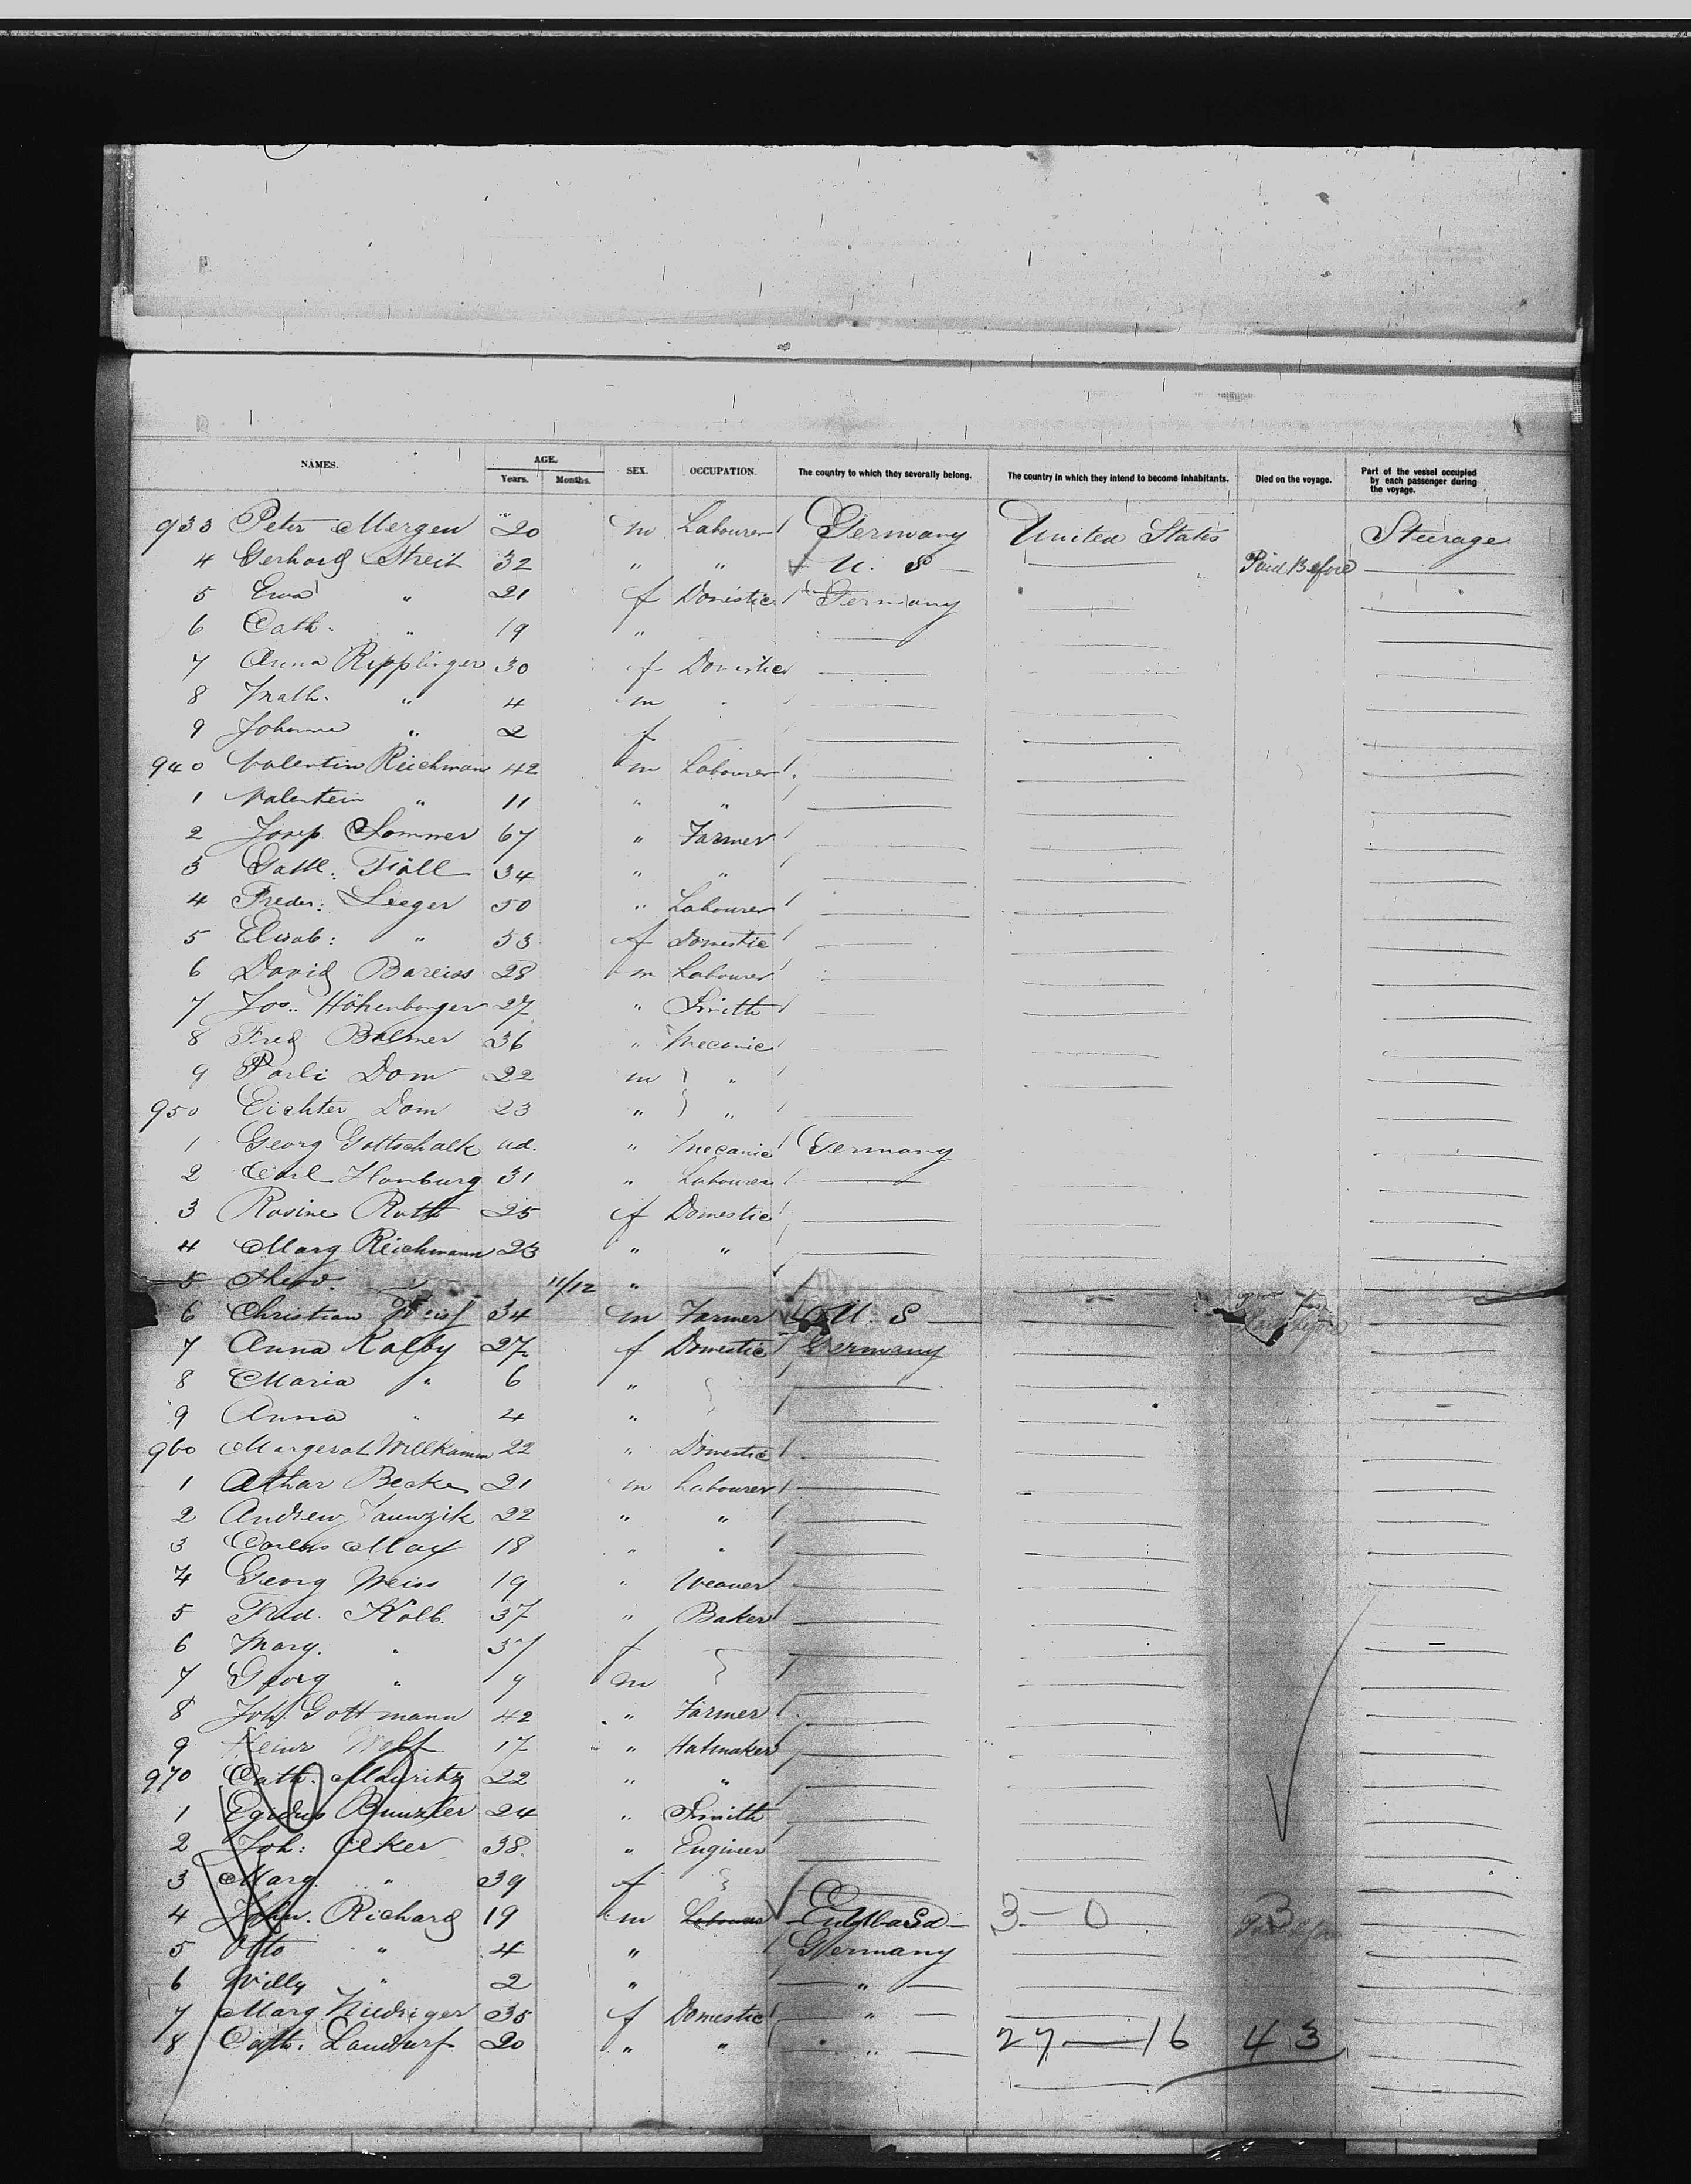 NAMES. AGE. Years. Months. SEX. OCCUPATION. The country to which they severally belong. The country in which they intend to become inhabitants. Died on the voyage. Part of the vessel occupied by each passenger during the voyage.
933 Peter Mergen 20 m Labourer Germany United States Steerage
4 Gerhard Streit 32 " " U. S Paid Before
5 Eva " 21 f Domestic Germany
6 Cath. " 19 "
7 Anna Ripplinger 30 f Domestic
8 Math. " 4 m
9 Johanna " 2 f
940 Valentin Reichmann 42 m Labourer
1 Valentin " 11 " "
2 Josep Sommer 67 " Farmer
3 Gottl. 34 " "
4 Freder: Seeger 50 " Labourer
5 Elisab: " 33 f Domestic
6 David Bareiss 28 m Labourer
7 Jos. Höhenberger 27 " Smith
8 Fred 36 " Mecanic
9 Dom 22 m "
950 Dom 23 " "
1 Georg Gottschalk ad. " Mecanic Germany
2 Carl Homburg 31 " Labourer
3 Rosine Roth 25 f Domestic
4 Marg Reichmann 23 " "
5 Theod. " 11/12 "
6 Christian 34 m Farmer U. S
7 Anna Kalby 27 f Domestic Germany
8 Maria " 6 "
9 Anna " 4 "
960 Margerat Willkamm 22 " Domestic
1 Becker 21 m Labourer
2 Andrew 22 " "
3 May 18 " "
4 Georg Weiss 19 " Weaver
5 Fred. Kolb. 37 " Baker
6 Marg. " 37 f
7 Georg " m
8 Joh. Gottmann 42 " Farmer
9 Heinr Wolf 17 " Hatmaker
970 Cath. Mauritz 22 " "
1 Egidius 24 " Smith
2 Joh: Aker 38 " Engineer
3 Marg. " 39 f
4 John. Richard 19 m Labourer England 3 - 0 3
5 Otto " 4 " Germany
6 Willy " 2 " "
7 Marg Niedriger 35 f Domestic "
8 Cath. Landurf 20 " " " 27 — 16 43